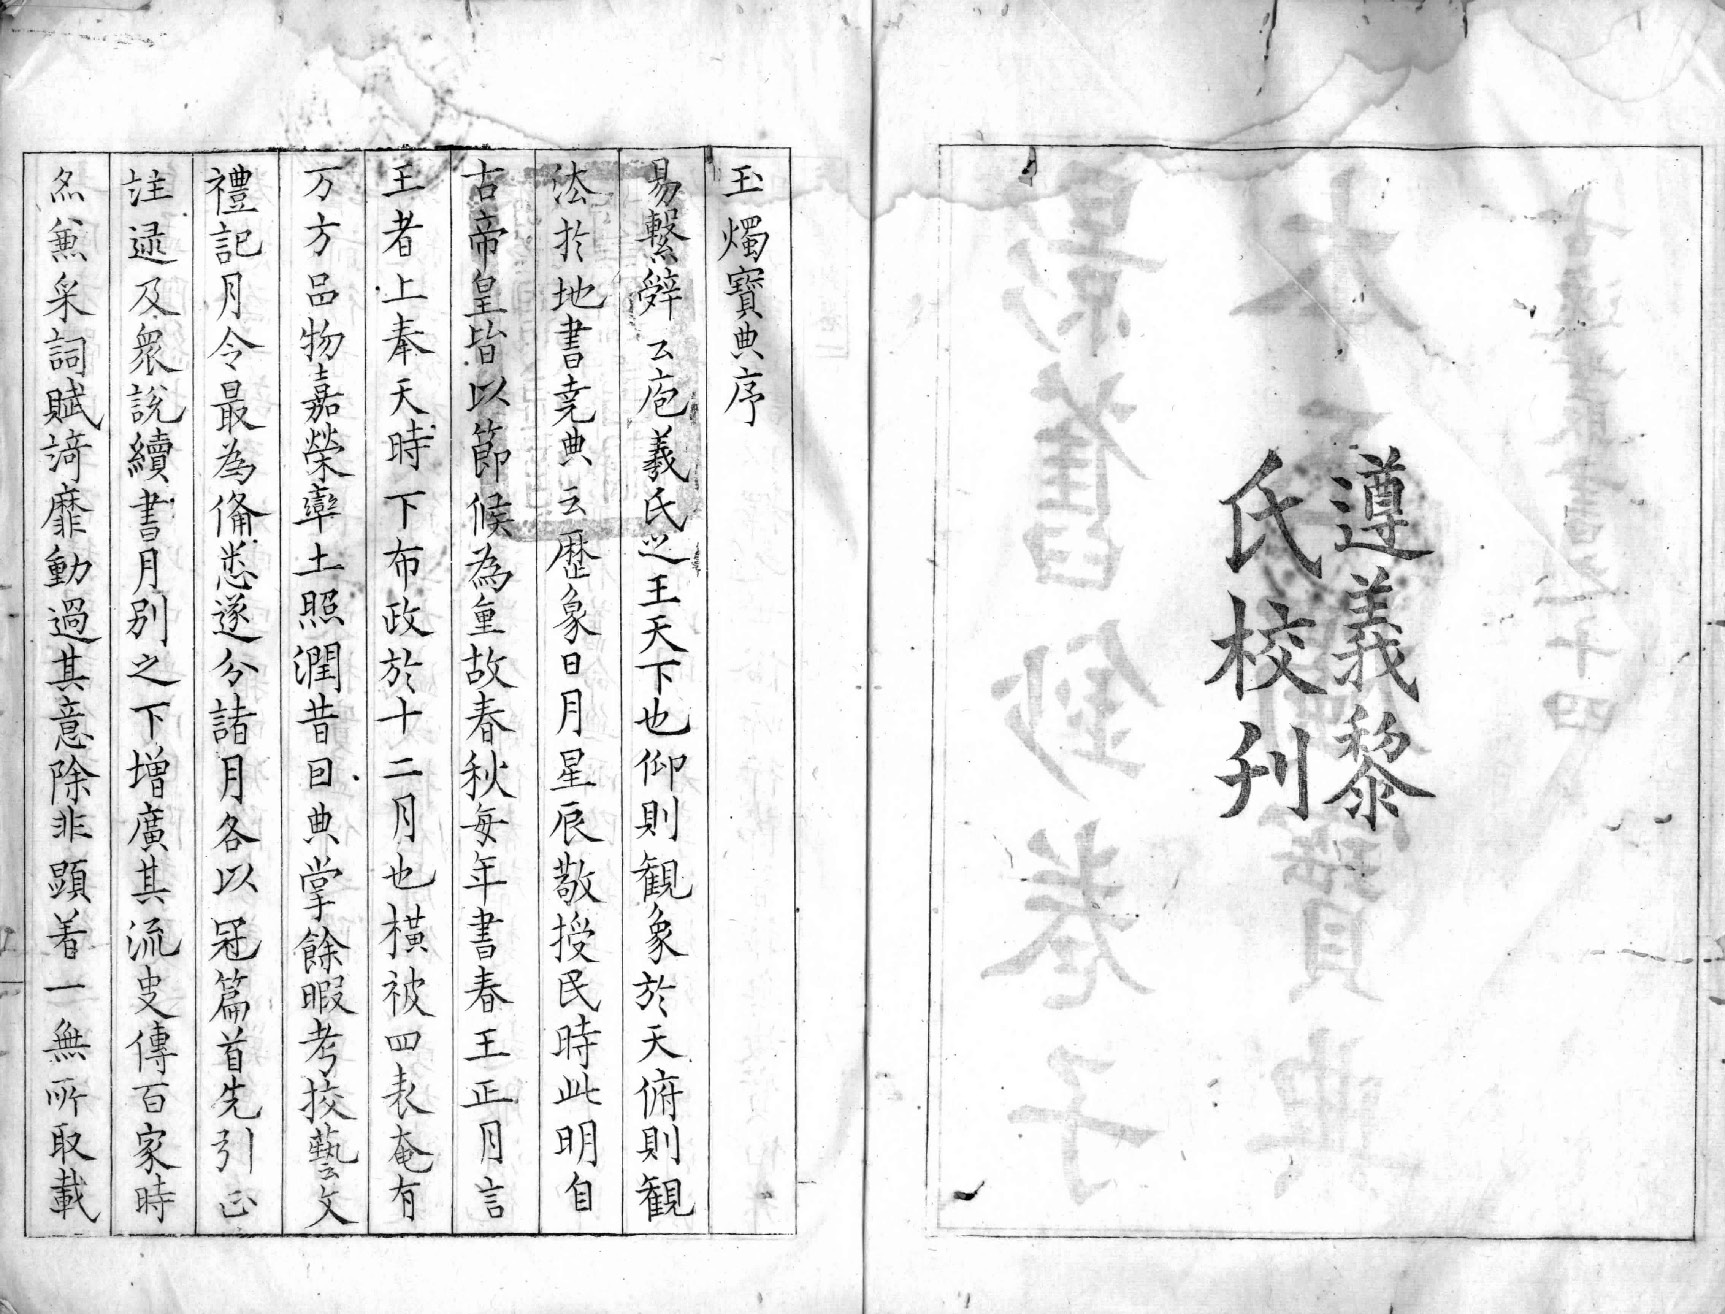 遵義黎
氏校刊
玉燭寶典序
易繫辤云庖羲氏之王天下也仰則觀象於天俯則觀
法於地書堯典云歷象日月星辰敬授民時此明自
古帝皇皆以節候為重故春秋每年書春王正月言
王者上奉天時下布政於十二月也橫被四表奄有
万方品物嘉榮率土照潤昔因典掌餘暇考挍藝文
禮記月令最為俻悉遂分諸月各以冠篇首先引正
註逯及衆說續書月別之下增廣其流史傳百家時
亦兼采詞賦綺靡動過其意除非顕着一無所取載